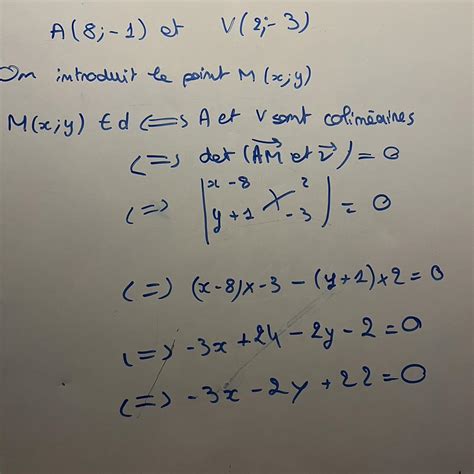 A(8;-1) et V(2;-3)
On introduit le point M(x;y)
M(x;y) ∈ d <=> A et V sont colinéaires
<=> det (AM et v) = 0
<=> | x-8 2 |
| y+1 -3 | = 0
<=> (x-8)x-3 - (y+1)x2 = 0
<=> -3x+24-2y-2=0
<=> -3x-2y+22=0